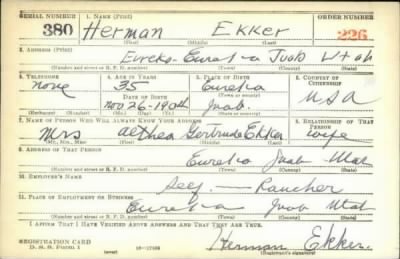 SERIAL NUMBER 1. NAME (Print) ORDER NUMBER
380 Herman Ekker 226
(First) (Middle) (Last)
2. ADDRESS (Print)
Eureka Juab Utah
(Number and street or R. F. D. number) (Town) (County) (State)
3. TELEPHONE 4. AGE IN YEARS 5. PLACE OF BIRTH 6. COUNTRY OF CITIZENSHIP
None 35 Eureka
DATE OF BIRTH (Town or county)
Nov 26-1904 Juab. USA
(Exchange) (Number) (Mo.) (Day) (Yr.) (State or country)
7. NAME OF PERSON WHO WILL ALWAYS KNOW YOUR ADDRESS 8. RELATIONSHIP OF THAT PERSON
Mrs Althea Gertrude Ekker wife
(Mr., Mrs., Miss) (First) (Middle) (Last)
9. ADDRESS OF THAT PERSON
Eureka Juab Utah
(Number and street or R. F. D. number) (Town) (County) (State)
10. EMPLOYER'S NAME
Self — Rancher
11. PLACE OF EMPLOYMENT OR BUSINESS
Eureka Juab Utah
(Number and street or R. F. D. number) (Town) (County) (State)
I AFFIRM THAT I HAVE VERIFIED ABOVE ANSWERS AND THAT THEY ARE TRUE.
REGISTRATION CARD
D. S. S. FORM 1 Herman Ekker
(Registrant's signature)